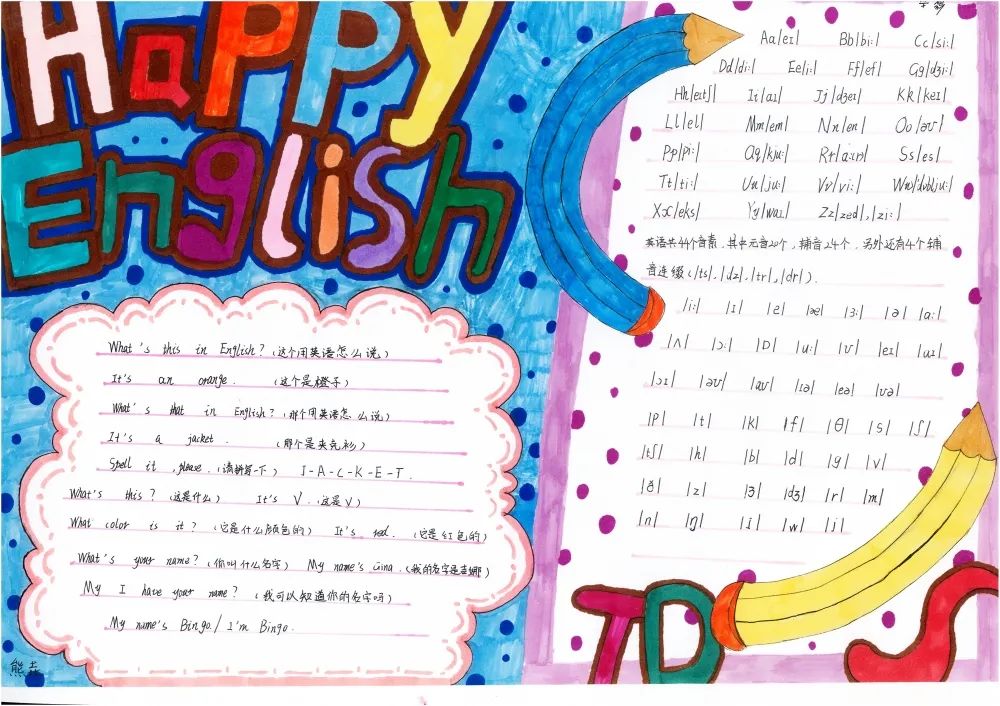 Happy
English
What's this in English? (这个用英语怎么说)
It's an orange. (这个是橙子)
What's that in English? (那个用英语怎么说)
It's a jacket. (那个是夹克衫)
Spell it, please. (请拼写一下) I-A-C-K-E-T.
What's this? (这是什么) It's V. (这是V)
What color is it? (它是什么颜色的) It's red. (它是红色的)
What's your name? (你叫什么名字) My name's Gina. (我的名字是吉娜)
My I have your name? (我可以知道你的名字吗)
My name's Bingo./ I'm Bingo.
熊
Aa|eɪ| Bb|bi:| Cc|si:|
Dd|di:| Ee|i:| Ff|ef| Gg|dʒi:|
Hh|eɪtʃ| Ii|aɪ| Jj|dʒeɪ| Kk|keɪ|
Ll|el| Mm|em| Nn|en| Oo|əʊ|
Pp|pi:| Qq|kju:| Rr|a:(r)| Ss|es|
Tt|ti:| Uu|ju:| Vv|vi:| Ww|ˈdʌblju:|
Xx|eks| Yy|waɪ| Zz|zed|,|zi:|
英语共44个音素,其中元音20个,辅音24个,另外还有4个辅
音连缀(|ts|,|dz|,|tr|,|dr|).
|i:| |ɪ| |e| |æ| |ɜ:| |ə| |a:|
|ʌ| |ɔ:| |ɒ| |u:| |ʊ| |eɪ| |aɪ|
|ɔɪ| |əʊ| |aʊ| |ɪə| |eə| |ʊə|
|p| |t| |k| |f| |θ| |s| |ʃ|
|tʃ| |h| |b| |d| |g| |v|
|ð| |z| |ʒ| |dʒ| |r| |m|
|n| |ŋ| |l| |w| |j|
TD S